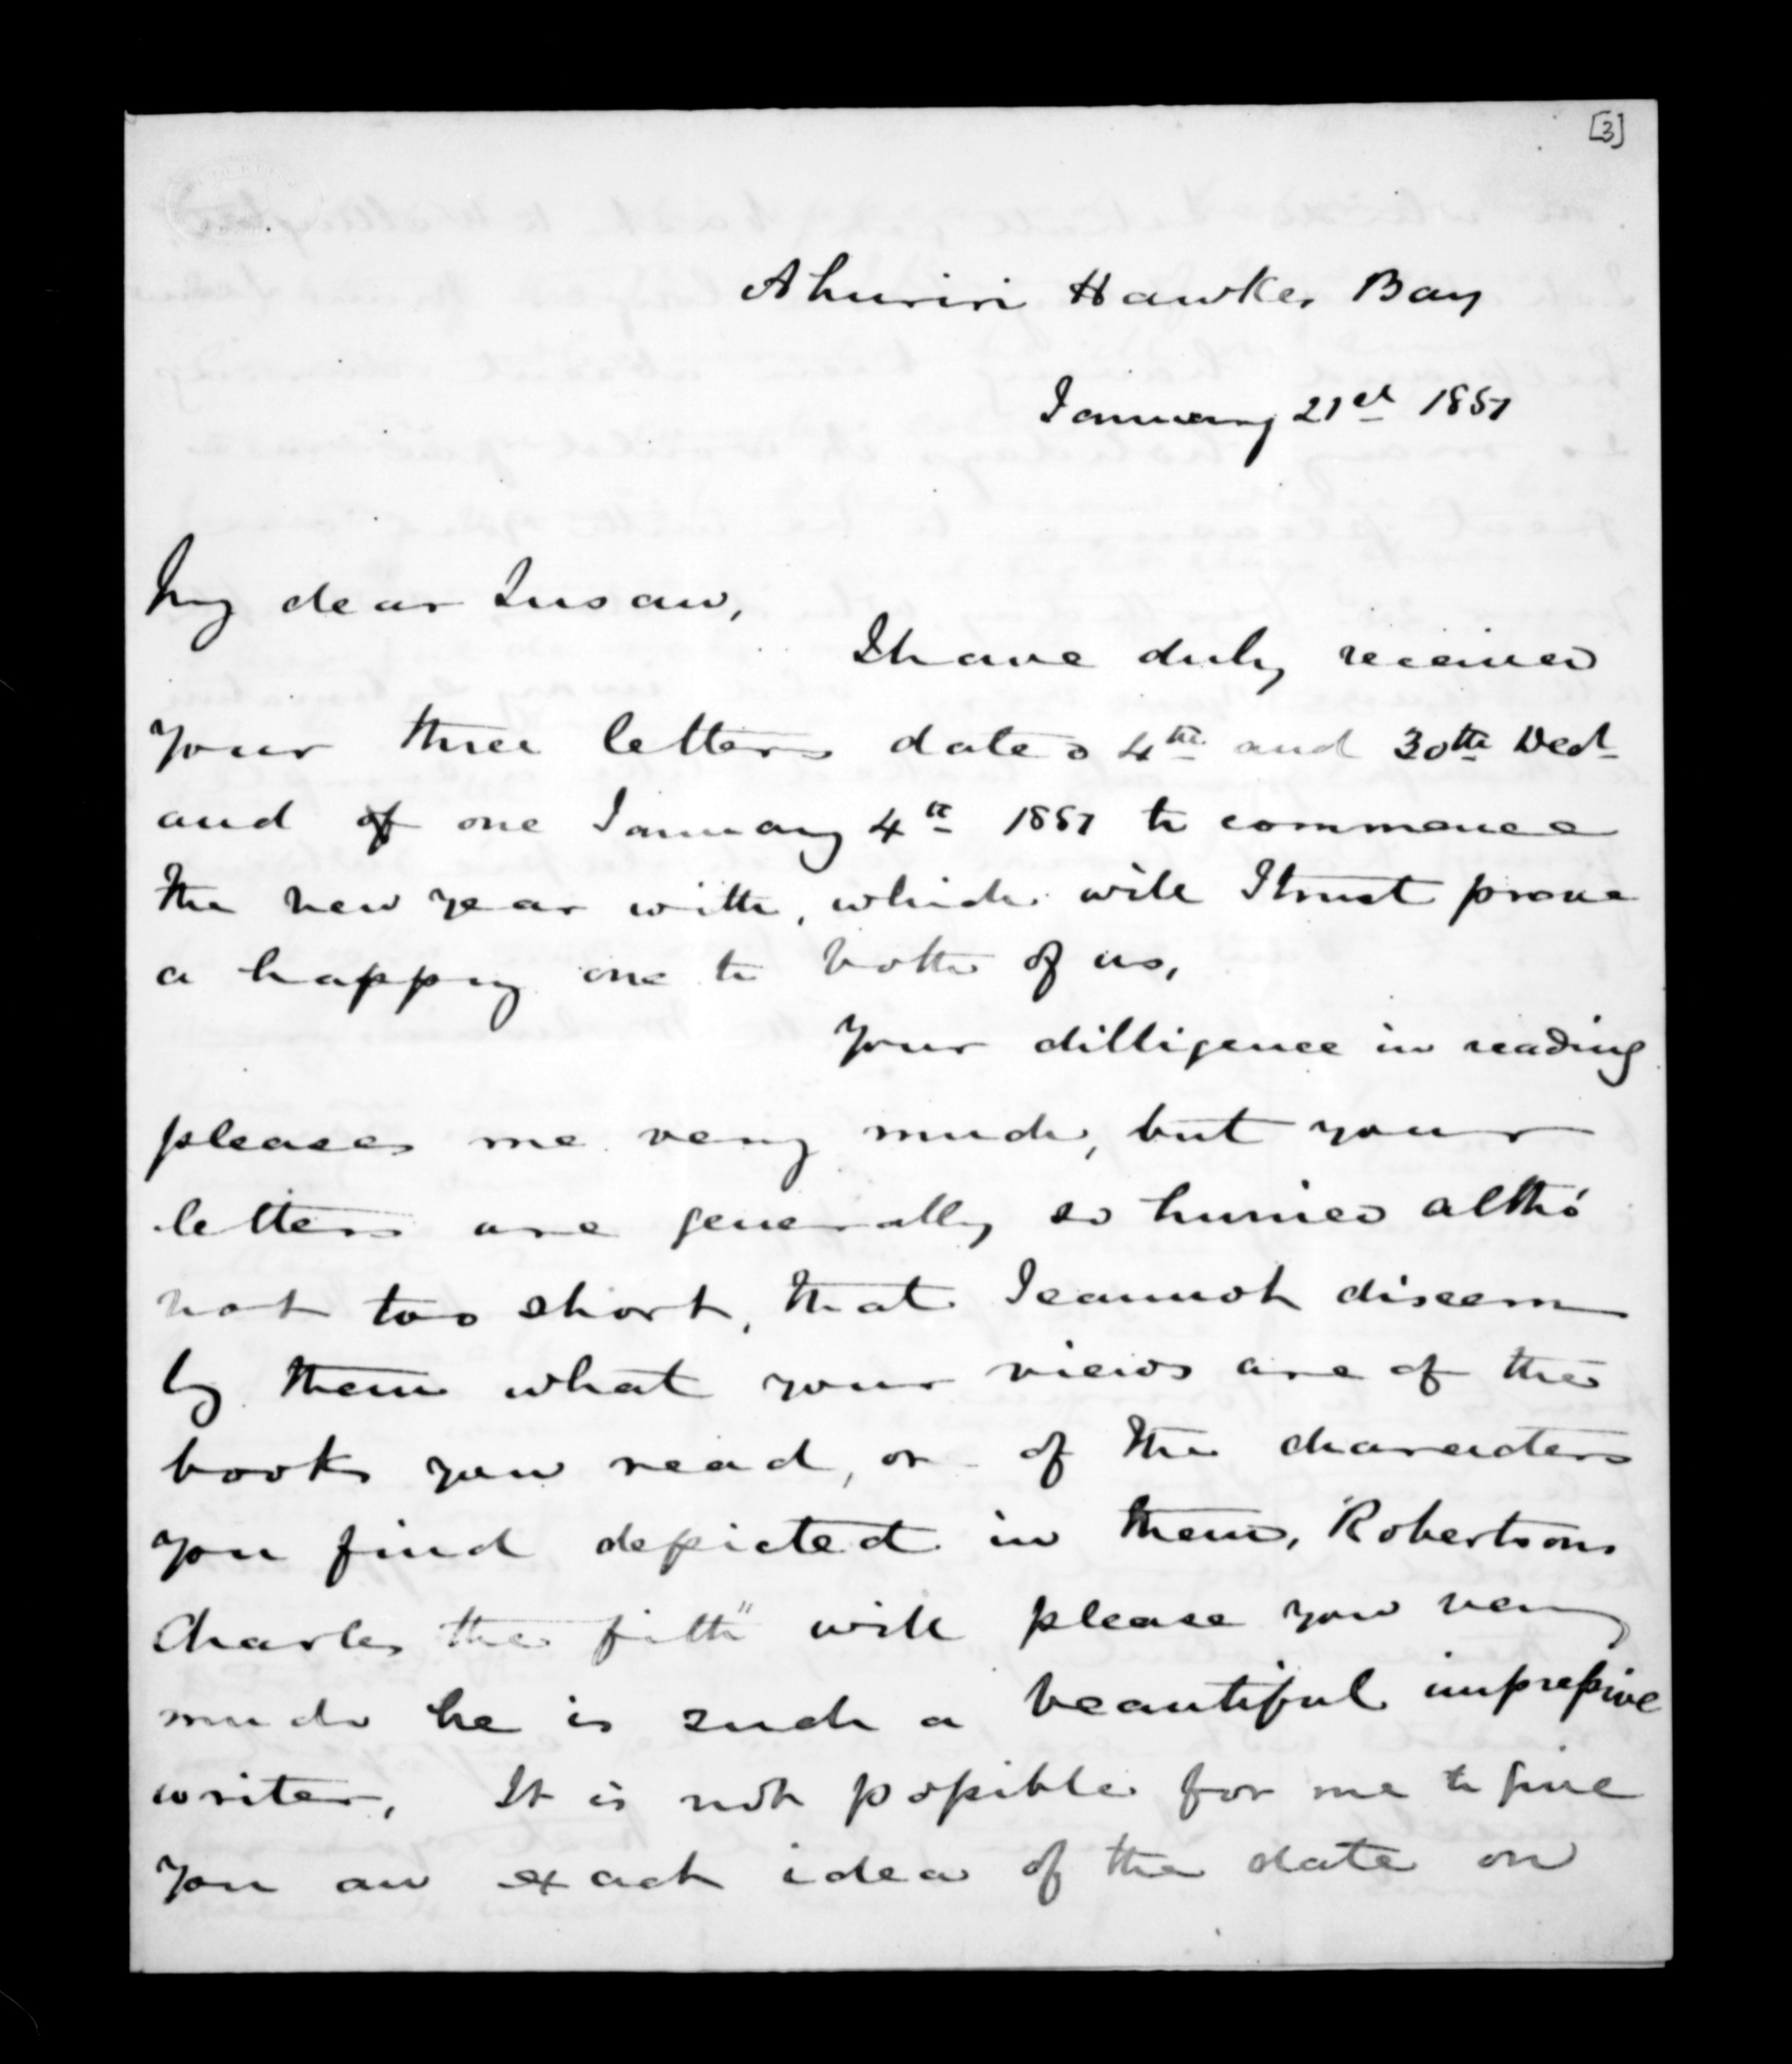 [3]
Ahuriri Hawkes Bay
January 21st 1851
My dear Susan,
I have duly received
your three letters dated 4th and 30th Decr
and of one January 4th 1851 to commence
the new year with, which will I trust prove
a happy one to both of us,
Your dilligence in reading
pleases me very much, but your
letters are generally so hurried altho'
not too short, that I cannot discern
by them what your views are of the
books you read, or of the characters
you find depicted in them, "Robertsons
Charles the fifth" will please you very
much he is such a beautiful impressive
writer, It is not possible for me to give
you an exact idea of the date on